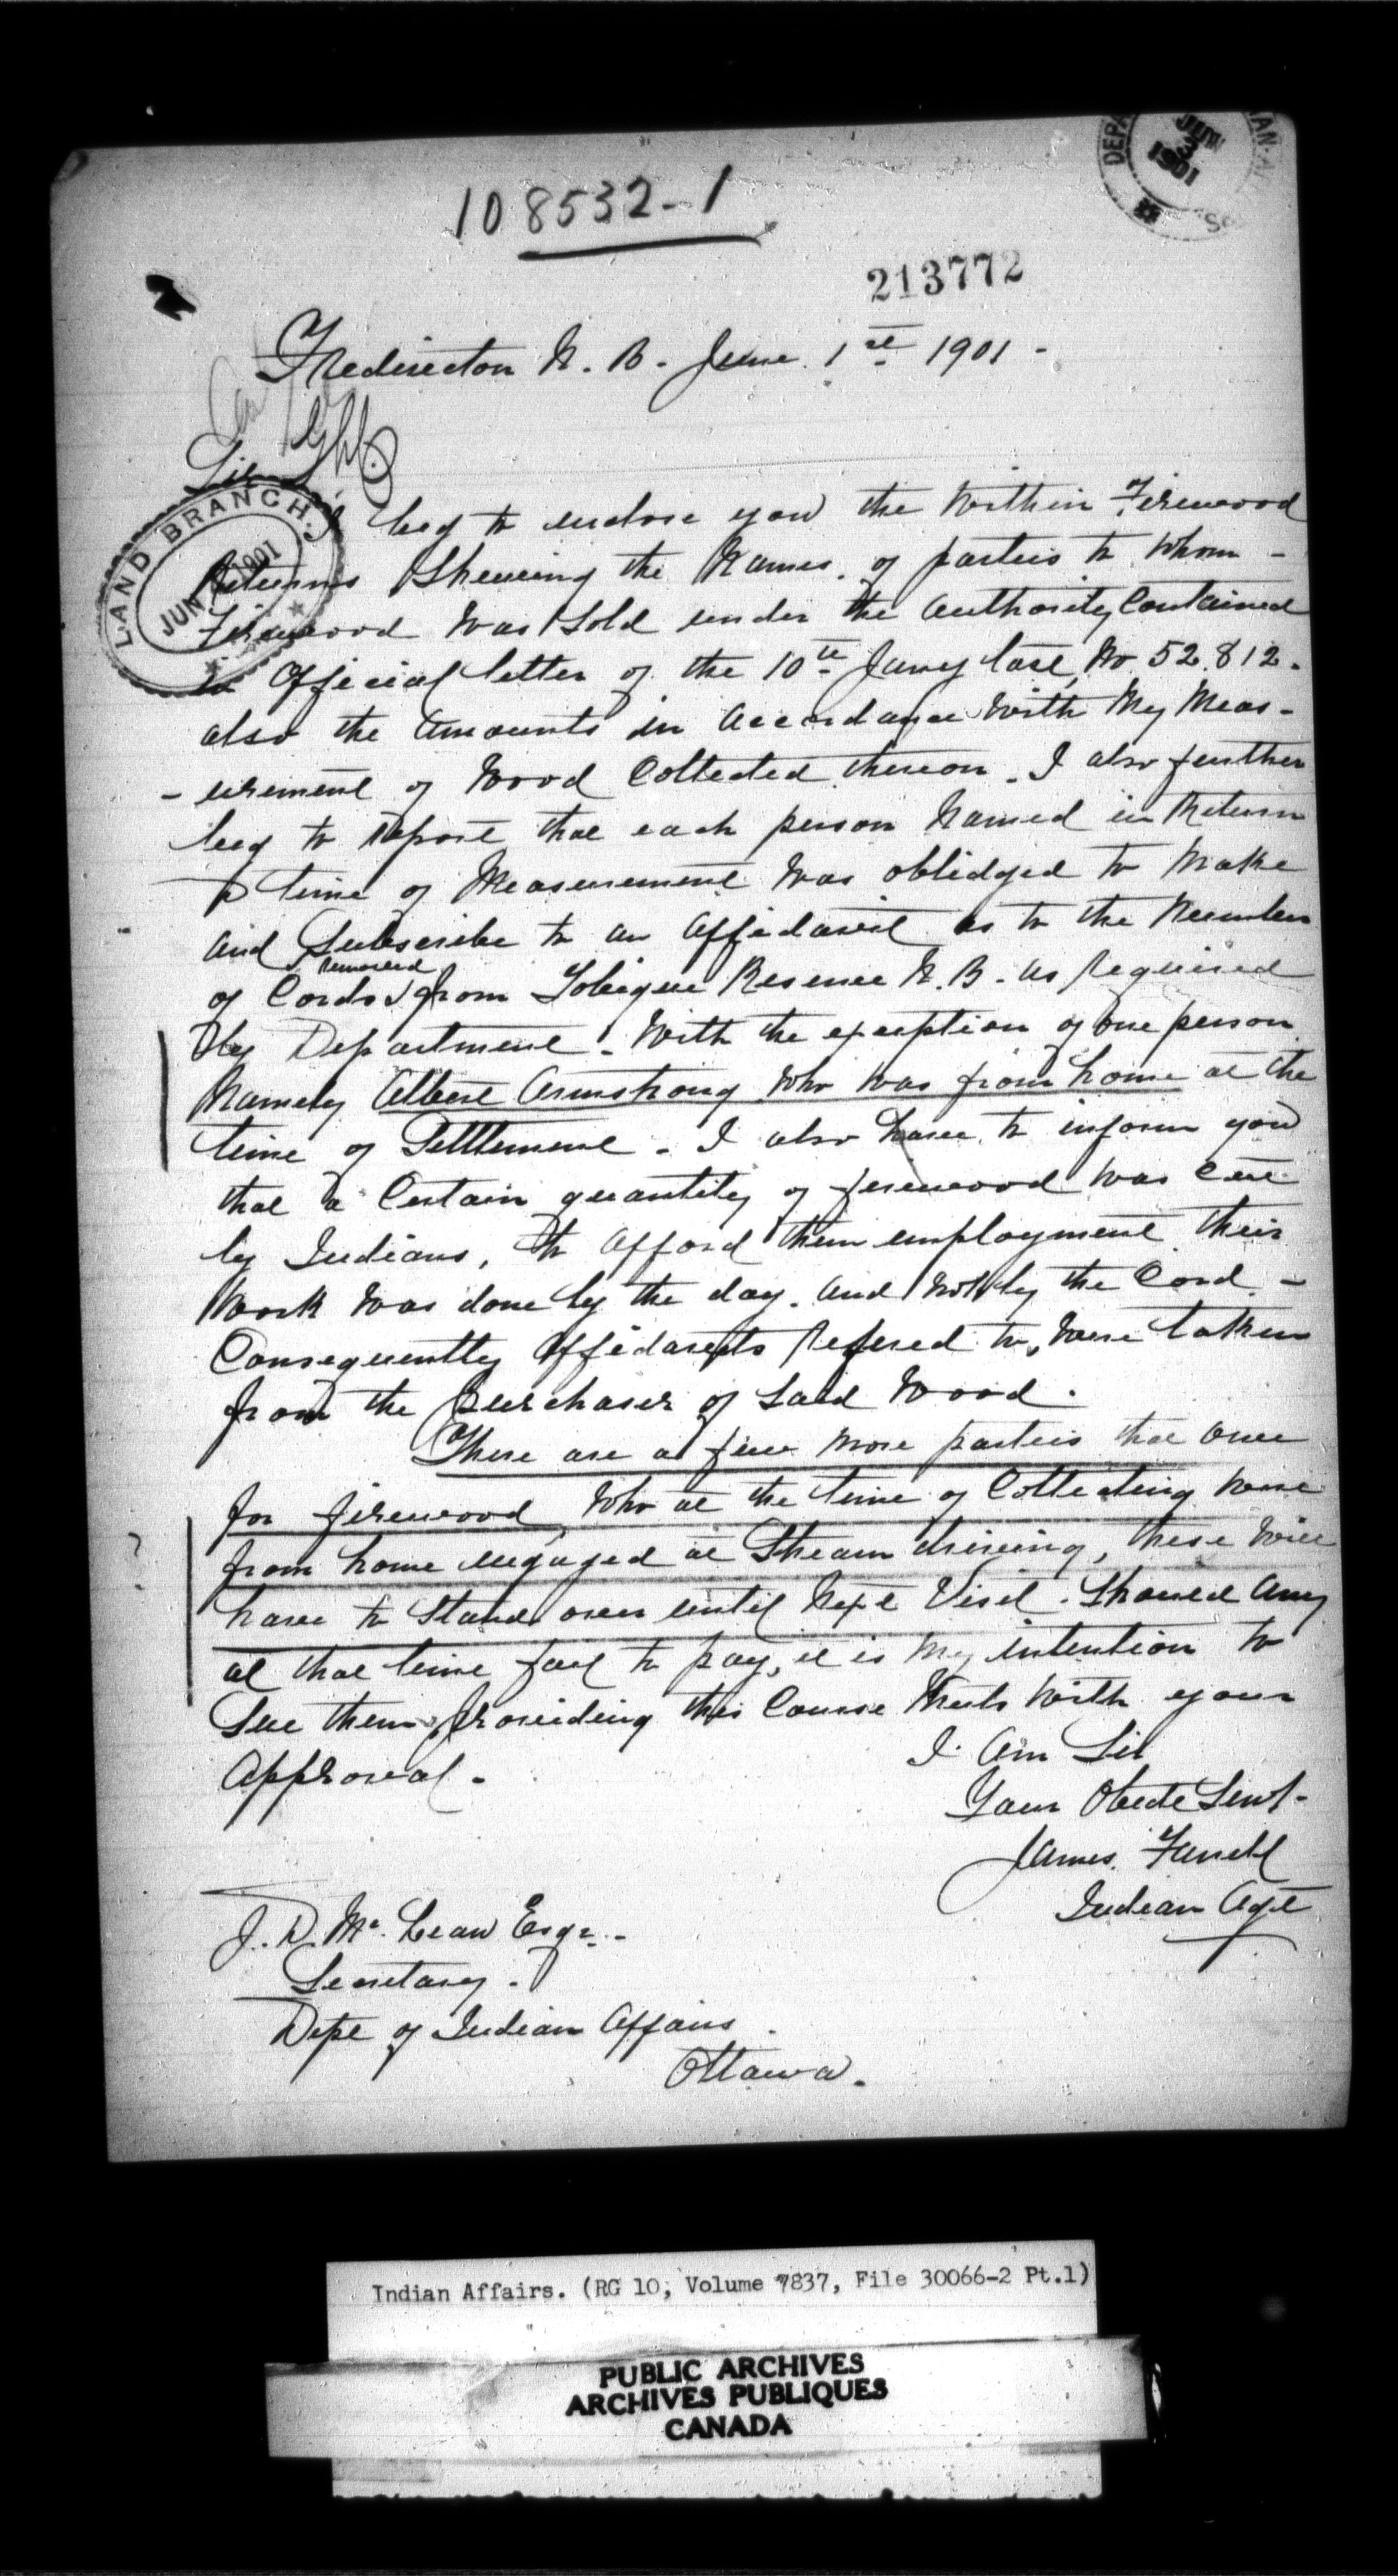 108532-1
DEPA
JUN
3
1901
213772
Fredericton N. B. June 1st 1901 -
Sir
LAND BRANCH.
JUN 1901
I beg to enclose you the within Firewood
Returns Shewing the Names of parties to whom -
Firewood was Sold under the authority Contained
in Official letter of the 10th Jany last, No 52.812.
also the Amounts in accordance with My Meas-
- urement of Wood Collected thereon. I also further
beg to report that each person Named in Return
at time of Measurement was oblidged to Make
and Subscribe to an affidavit as to the Number
removed
of Cords from Tobique Reserve N. B. as required
By Department. With the exception of one person
Namely Albert Armstrong who was from home at the
time of Settlement. I also have to inform you
that a Certain quantity of firewood was Cut
by Indians, to afford them employment their
work was done by the day. and not by the Cord. -
Consequently Affidavits refered to, were taken
from the Purchaser of Said Wood.
There are a few more parties that owe
for firewood, who at the time of Collecting were
from home engaged at Stream driving, these will
?
have to Stand over until Next Visit. Should Any
at that time fail to pay, it is My intention to
Sue them, providing this Course Meets with your
Approval.
I Am Sir
Your Obedt Servt-
James Farrell
Indian Agt
J. D. Mc. Lean Esqr.
Secretary.
Dept of Indian Affairs
Ottawa.
Indian Affairs. (RG 10, Volume 7837, File 30066-2 Pt.1)
PUBLIC ARCHIVES
ARCHIVES PUBLIQUES
CANADA